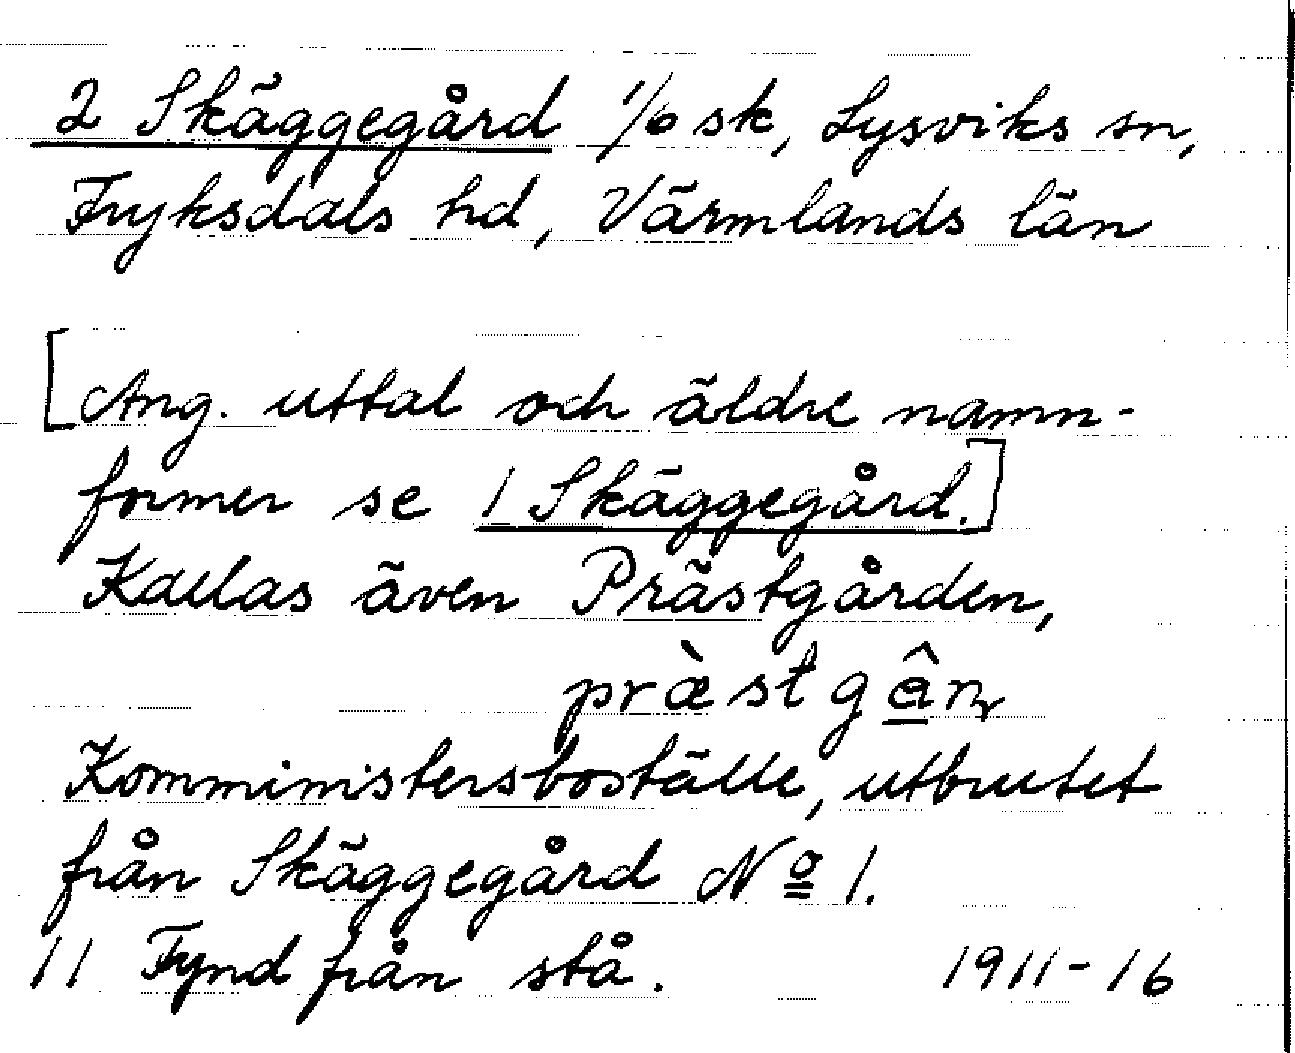 2 Skäggegård 1/6 sk, Lysviks sn,
Fryksdals hd, Värmlands län
[Ang. uttal och äldre namn-
former se 1 Skäggegård.]
Kallas även Prästgården,
præ̀stgân
Komministersboställe, utbrutet
från Skäggegård No 1.
11 Fynd från stå. 1911-16